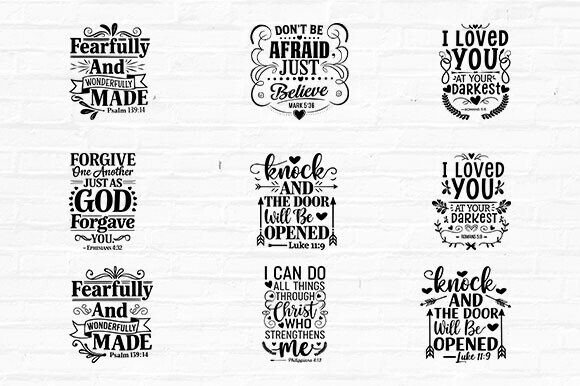 Fearfully
And
WONDERFULLY
MADE
Psalm 139:14
DON'T BE
AFRAID,
JUST
Believe
MARK 5:36
I LOVED
YOU
AT YOUR
DARKEST
ROMANS 5:8
FORGIVE
One Another
JUST AS
GOD
Forgave
YOU
EPHESIANS 4:32
knock
AND
THE DOOR
Will Be
OPENED
Luke 11:9
I LOVED
YOU
AT YOUR
DARKEST
ROMANS 5:8
Fearfully
And
WONDERFULLY
MADE
Psalm 139:14
I CAN DO
ALL THINGS
THROUGH
Christ
WHO
STRENGTHENS
me
Philippians 4:13
knock
AND
THE DOOR
Will Be
OPENED
Luke 11:9